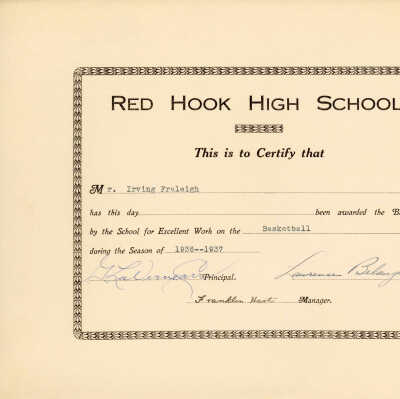 RED HOOK HIGH SCHOOL
This is to Certify that
Mr. Irving Fraleigh
has this day been awarded the
by the School for Excellent Work on the Basketball
during the Season of 1936--1937
Principal. Lawrence
Franklin Hart Manager.